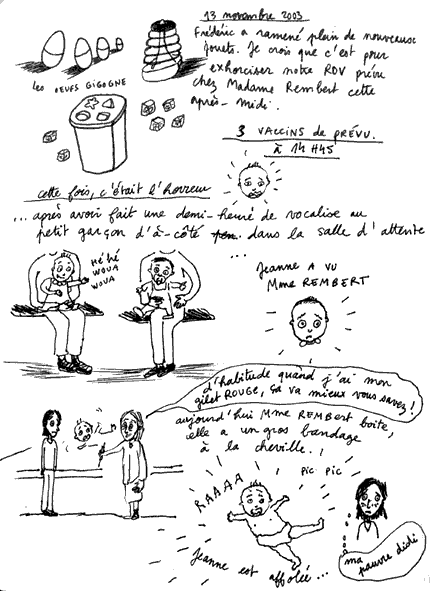 13 novembre 2003
Frédéric a ramené plein de nouveaux
jouets. Je crois que c'est pour
exhorciser notre RDV prévu
chez Madame Rembert cette
après-midi.
les OEUFS GIGOGNE
3 VACCINS de PRÉVU.
à 14H45
cette fois, c'était l'horreur
... après avoir fait une demi-heure de vocalise au
petit garçon d'à-côté dans la salle d'attente
...
HÉ HÉ
WOUA
WOUA
Jeanne A VU
Mme REMBERT
d'habitude quand j'ai mon
gilet ROUGE, ça va mieux vous savez!
aujourd'hui Mme REMBERT boite,
elle a un gros bandage
à la cheville.
RAAAA
PIC PIC
Jeanne est affolée...
ma
pauvre didi